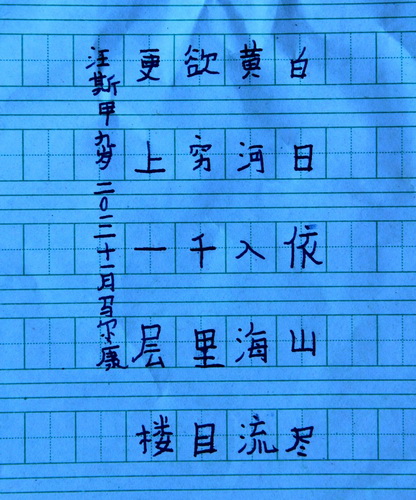 白日依山尽
黄河入海流
欲穷千里目
更上一层楼
汪斯甲九岁二〇二一十一月马尔康